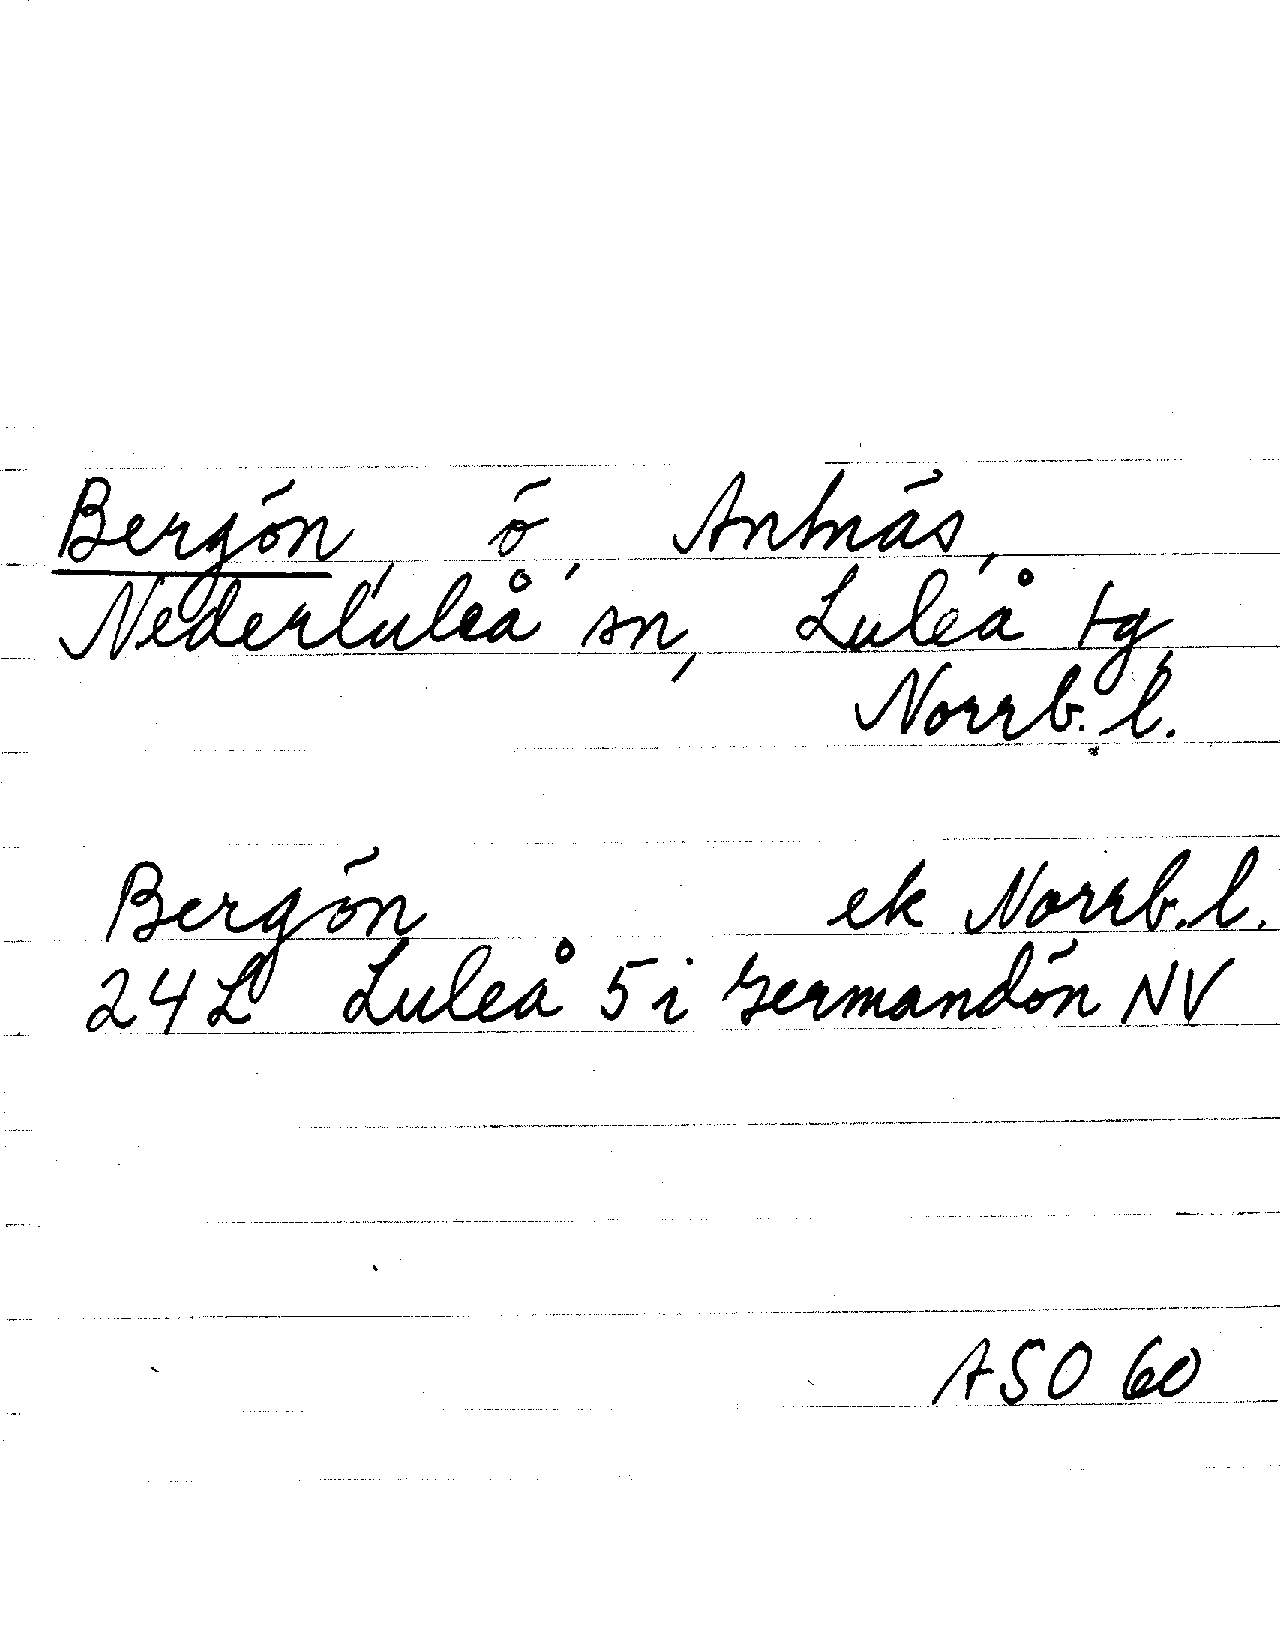 Bergön, ö, Antnäs,
Nederluleå sn, Luleå tg,
Norrb. l.
Bergön ek Norrb. l.
24 L Luleå 5 i Germandön NV
ASO 60